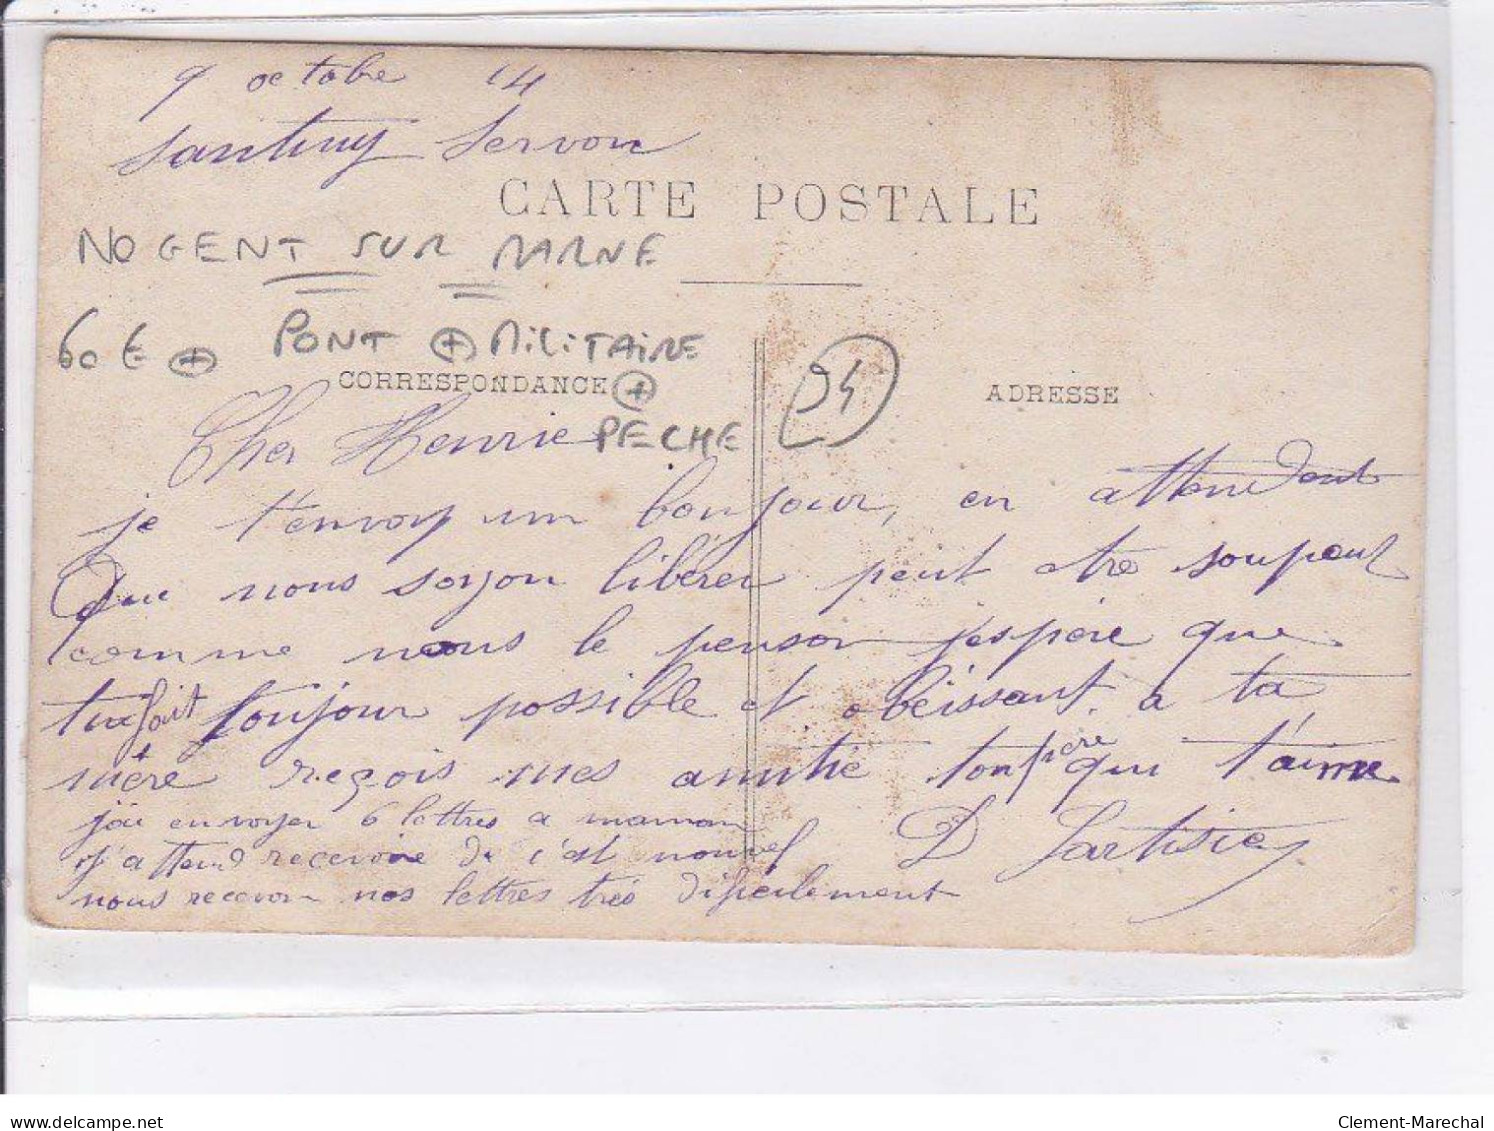 9 octobre 14
Santeny Servon
CARTE POSTALE
NOGENT SUR MARNE
60 € + PONT + MILITAIRE
CORRESPONDANCE +
94
ADRESSE
PECHE
Cher Henrie
je t'envoy un bonjour, en attendent
que nous soyon libérer peut etre soupeut
comme nous le penson j'espère que
tu fait toujour possible et obëissant a ta
mère reçois mes amitié ton père qui t'aime
j'ai envoyer 6 lettres a maman
j'attend recevoire de c'est nouvel
D Lartisie
nous recevon nos lettres très dificilement
delcampe.net
Clement-Marechal